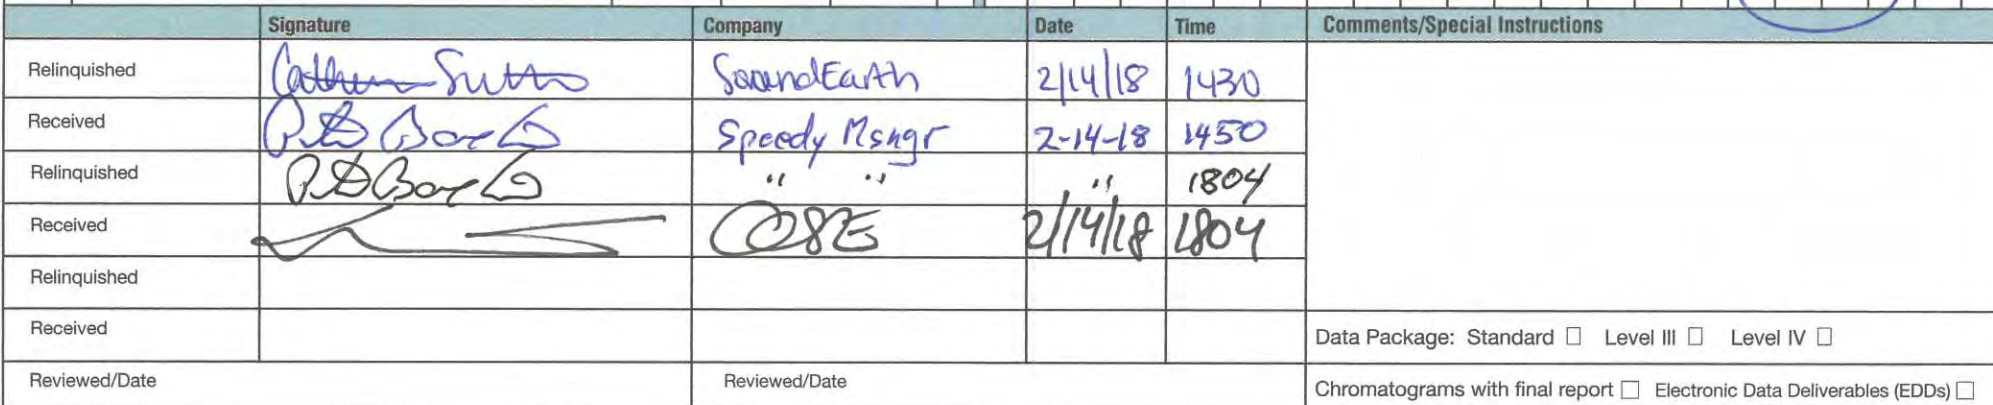 Signature Company Date Time Comments/Special Instructions
Relinquished SoundEarth 2/14/18 1430
Received Speedy Msngr 2-14-18 1450
Relinquished " " " 1804
Received OSE 2/14/18 1804
Relinquished
Received
Data Package: Standard ☐ Level III ☐ Level IV ☐
Reviewed/Date Reviewed/Date
Chromatograms with final report ☐ Electronic Data Deliverables (EDDs) ☐